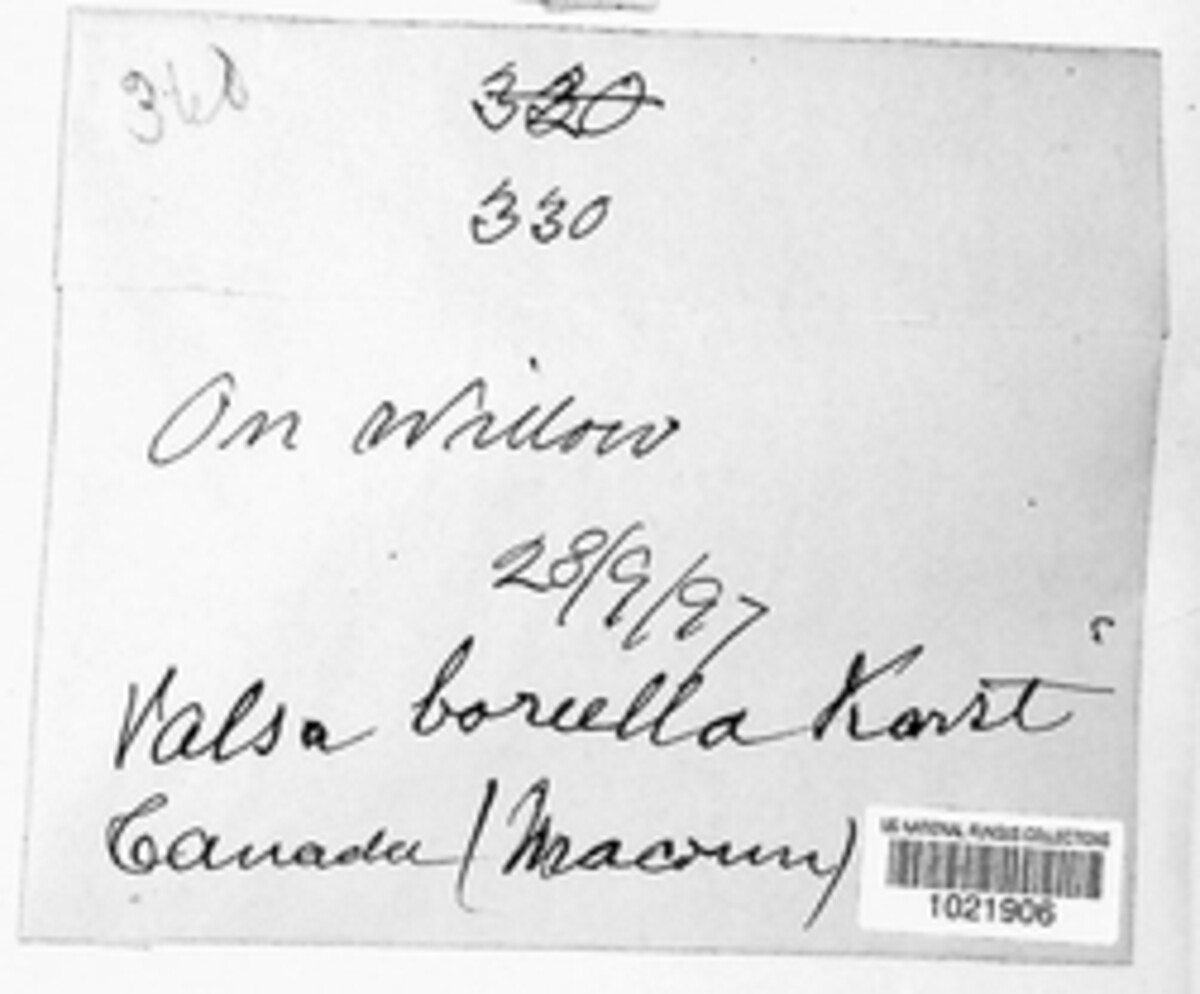 320
330
On Willow
28/9/97
Valsa boreella Karst
Canada (Macoun)
US NATIONAL FUNGUS COLLECTIONS
1021906